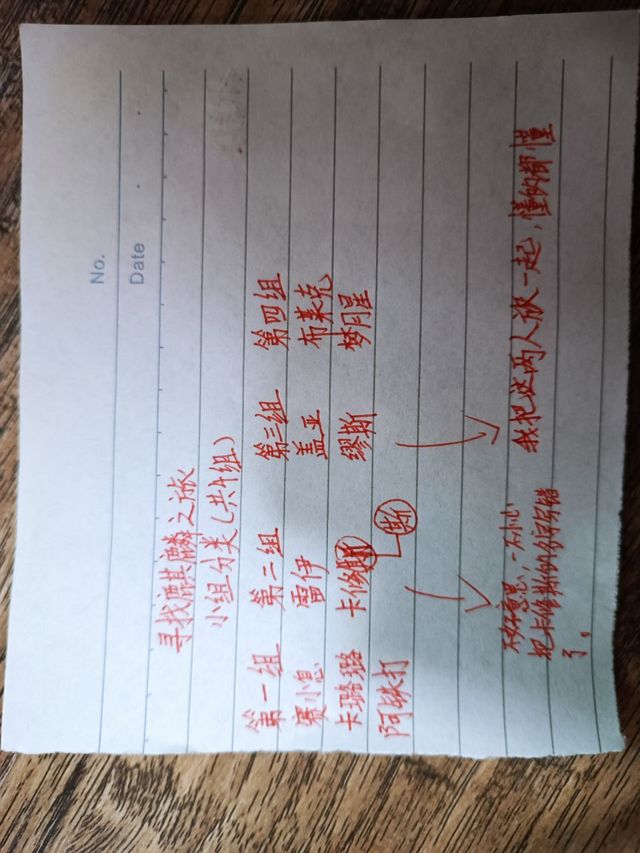 No.
Date
寻找麒麟之旅
小组分类(共4组)
第一组 第二组 第三组 第四组
赛小息 雷伊 盖亚 布莱克
卡璐璐 卡修 缪斯 梦月星
阿铁打 斯
不好意思,一不小心
把卡修斯的名字写错
了。
我把这两人放一起,懂的都懂